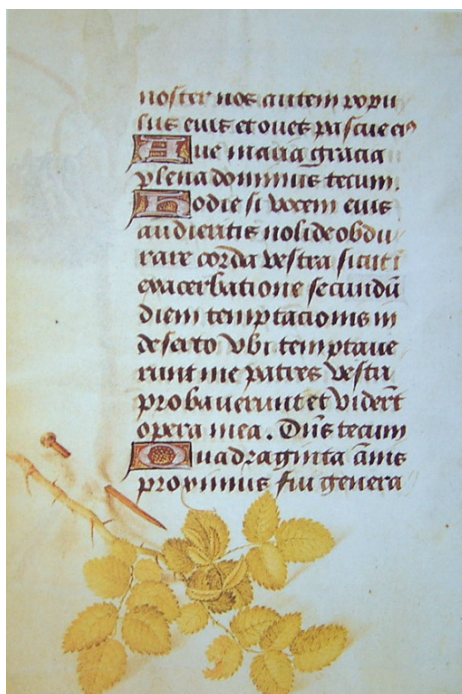 noster nos autem popu
lus eius et oues pascue eiꝰ
Aue maria gracia
plena dominus tecum.
Hodie si vocem eius
audieritis nolide obdu
rare corda vestra sicut i
exacerbatione secundū
diem temptacionis in
deserto vbi temptaue
runt me patres vestri
probauerunt et viderūt
opera mea. Dn̄s tecum
Quadraginta ānis
proximus fui genera